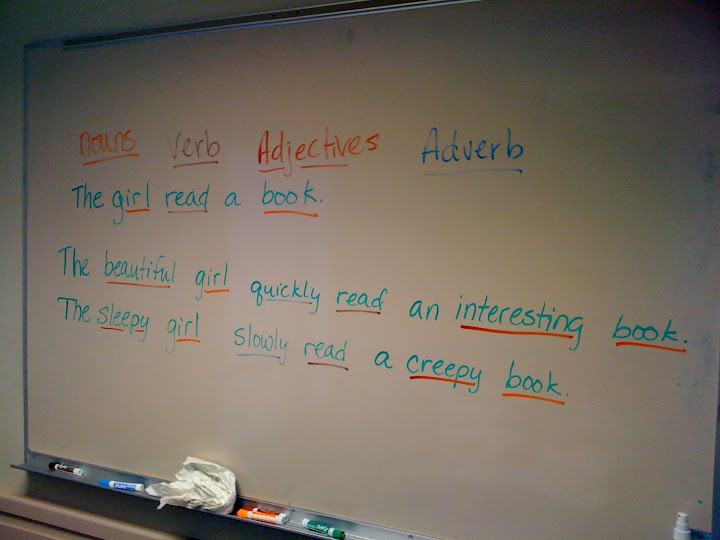 nouns verb Adjectives Adverb
The girl read a book.
The beautiful girl quickly read an interesting book.
The sleepy girl slowly read a creepy book.